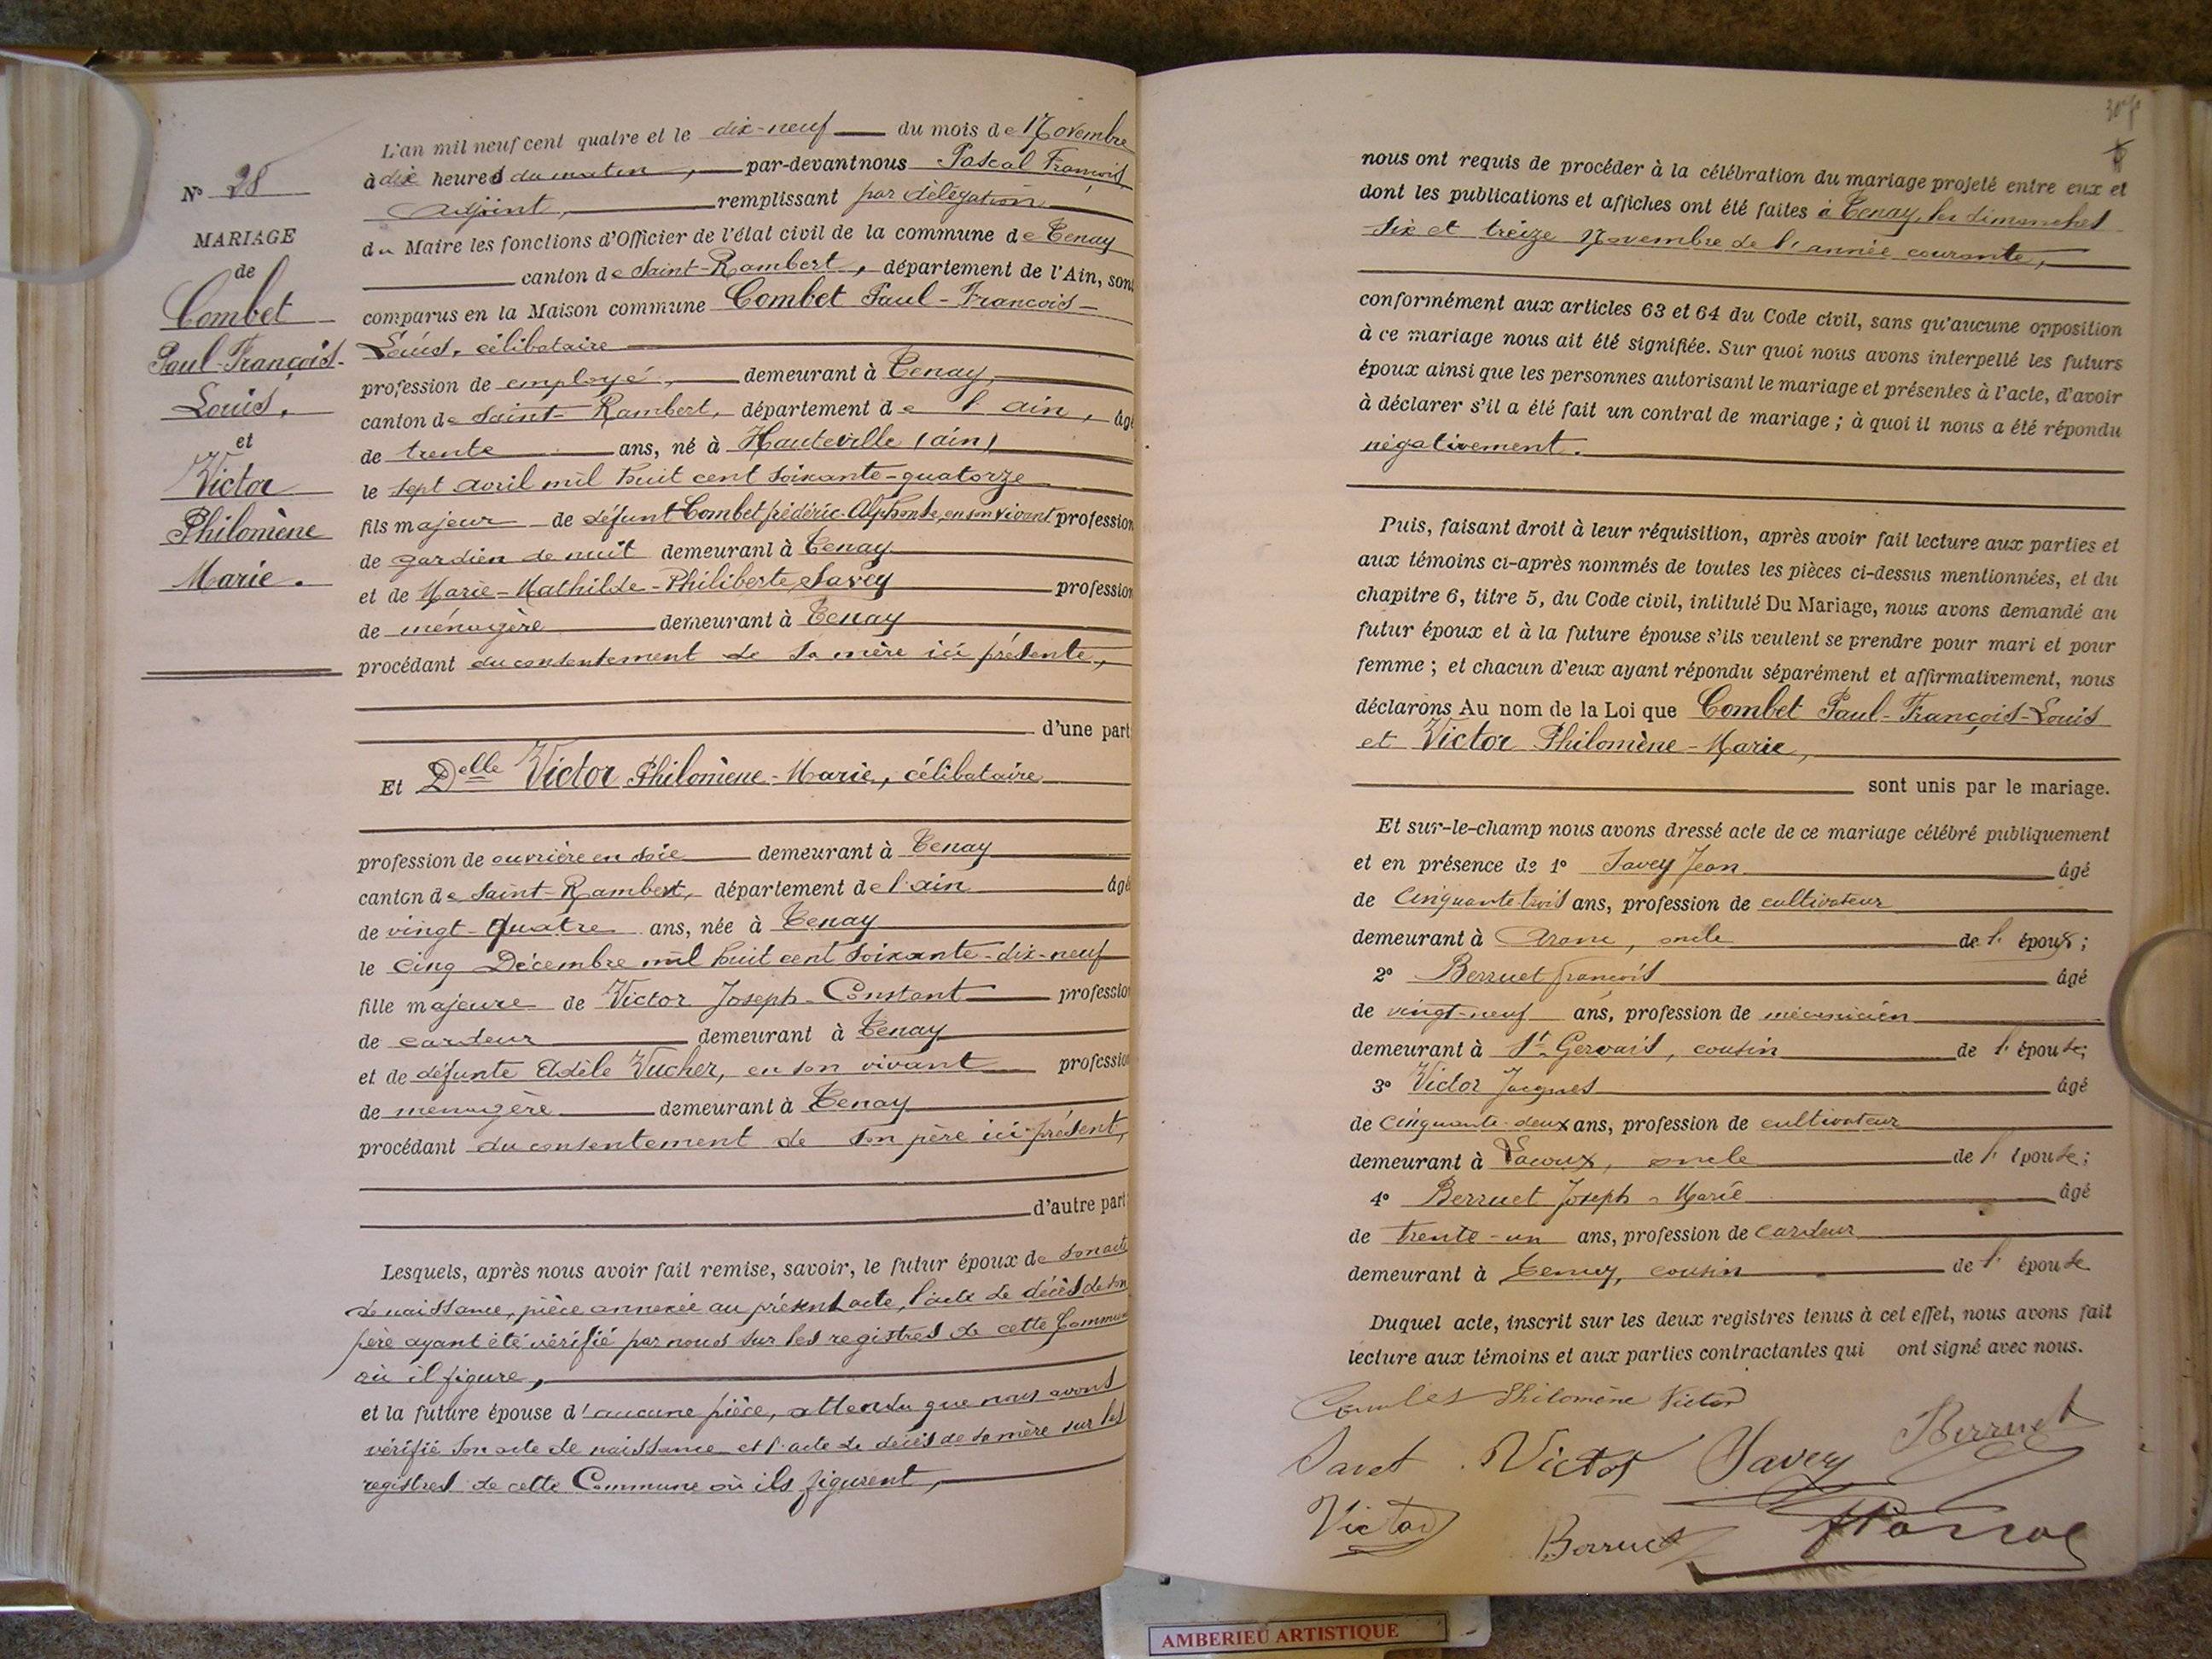 N° 28
MARIAGE
de
Combet
Paul-François-
Louis,
et
Victor
Philomène
Marie.
L'an mil neuf cent quatre et le dix-neuf du mois de Novembre
à dix heures du matin, par-devant nous Pascal François
Adjoint, remplissant par délégation
du Maire les fonctions d'Officier de l'état civil de la commune de Tenay
canton de Saint-Rambert, département de l'Ain, sont
comparus en la Maison commune Combet Paul-François-
Louis, célibataire
profession de employé, demeurant à Tenay,
canton de Saint-Rambert, département de l'ain, âgé
de trente ans, né à Hauteville (ain)
le sept avril mil huit cent soixante-quatorze
fils majeur de défunt Combet frédéric-Alphonse, en son vivant profession
de gardien de nuit demeurant à Tenay
et de Marie-Mathilde-Philiberte Savey profession
de ménagère demeurant à Tenay
procédant du consentement de sa mère ici présente,
d'une part
Et Delle Victor Philomène-Marie, célibataire
profession de ouvrière en soie demeurant à Tenay
canton de Saint-Rambert, département de l'ain âgé
de vingt-quatre ans, née à Tenay
le cinq Décembre mil huit cent soixante-dix-neuf
fille majeure de Victor Joseph-Constant profession
de cardeur demeurant à Tenay
et de défunte Adèle Vucher, en son vivant profession
de ménagère demeurant à Tenay
procédant du consentement de son père ici présent,
d'autre part
Lesquels, après nous avoir fait remise, savoir, le futur époux de son acte
de naissance, pièce annexée au présent acte, l'acte de décès de son
père ayant été vérifié par nous sur les registres de cette Commune
où il figure,
et la future épouse d'aucune pièce, attendu que nous avons
vérifié son acte de naissance et l'acte de décès de sa mère sur les
registres de cette Commune où ils figurent,
nous ont requis de procéder à la célébration du mariage projeté entre eux et
dont les publications et affiches ont été faites à Tenay, les dimanches
six et treize Novembre de l'année courante,
conformément aux articles 63 et 64 du Code civil, sans qu'aucune opposition
à ce mariage nous ait été signifiée. Sur quoi nous avons interpellé les futurs
époux ainsi que les personnes autorisant le mariage et présentes à l'acte, d'avoir
à déclarer s'il a été fait un contrat de mariage ; à quoi il nous a été répondu
négativement.
Puis, faisant droit à leur réquisition, après avoir fait lecture aux parties et
aux témoins ci-après nommés de toutes les pièces ci-dessus mentionnées, et du
chapitre 6, titre 5, du Code civil, intitulé Du Mariage, nous avons demandé au
futur époux et à la future épouse s'ils veulent se prendre pour mari et pour
femme ; et chacun d'eux ayant répondu séparément et affirmativement, nous
déclarons Au nom de la Loi que Combet Paul-François-Louis
et Victor Philomène-Marie,
sont unis par le mariage.
Et sur-le-champ nous avons dressé acte de ce mariage célébré publiquement
et en présence de 1° Savey Jean âgé
de cinquante-trois ans, profession de cultivateur
demeurant à Aranc, oncle de l'époux ;
2° Berruet françois âgé
de vingt-neuf ans, profession de mécanicien
demeurant à St-Gervais, cousin de l'épouse;
3° Victor Jacques âgé
de cinquante-deux ans, profession de cultivateur
demeurant à Lacoux, oncle de l'épouse;
4° Berruet Joseph-Marie âgé
de trente-un ans, profession de cardeur
demeurant à Tenay, cousin de l'épouse
Duquel acte, inscrit sur les deux registres tenus à cet effet, nous avons fait
lecture aux témoins et aux parties contractantes qui ont signé avec nous.
Philomène Victor
Victor Savey Berruet
Victor Berruet
AMBERIEU ARTISTIQUE